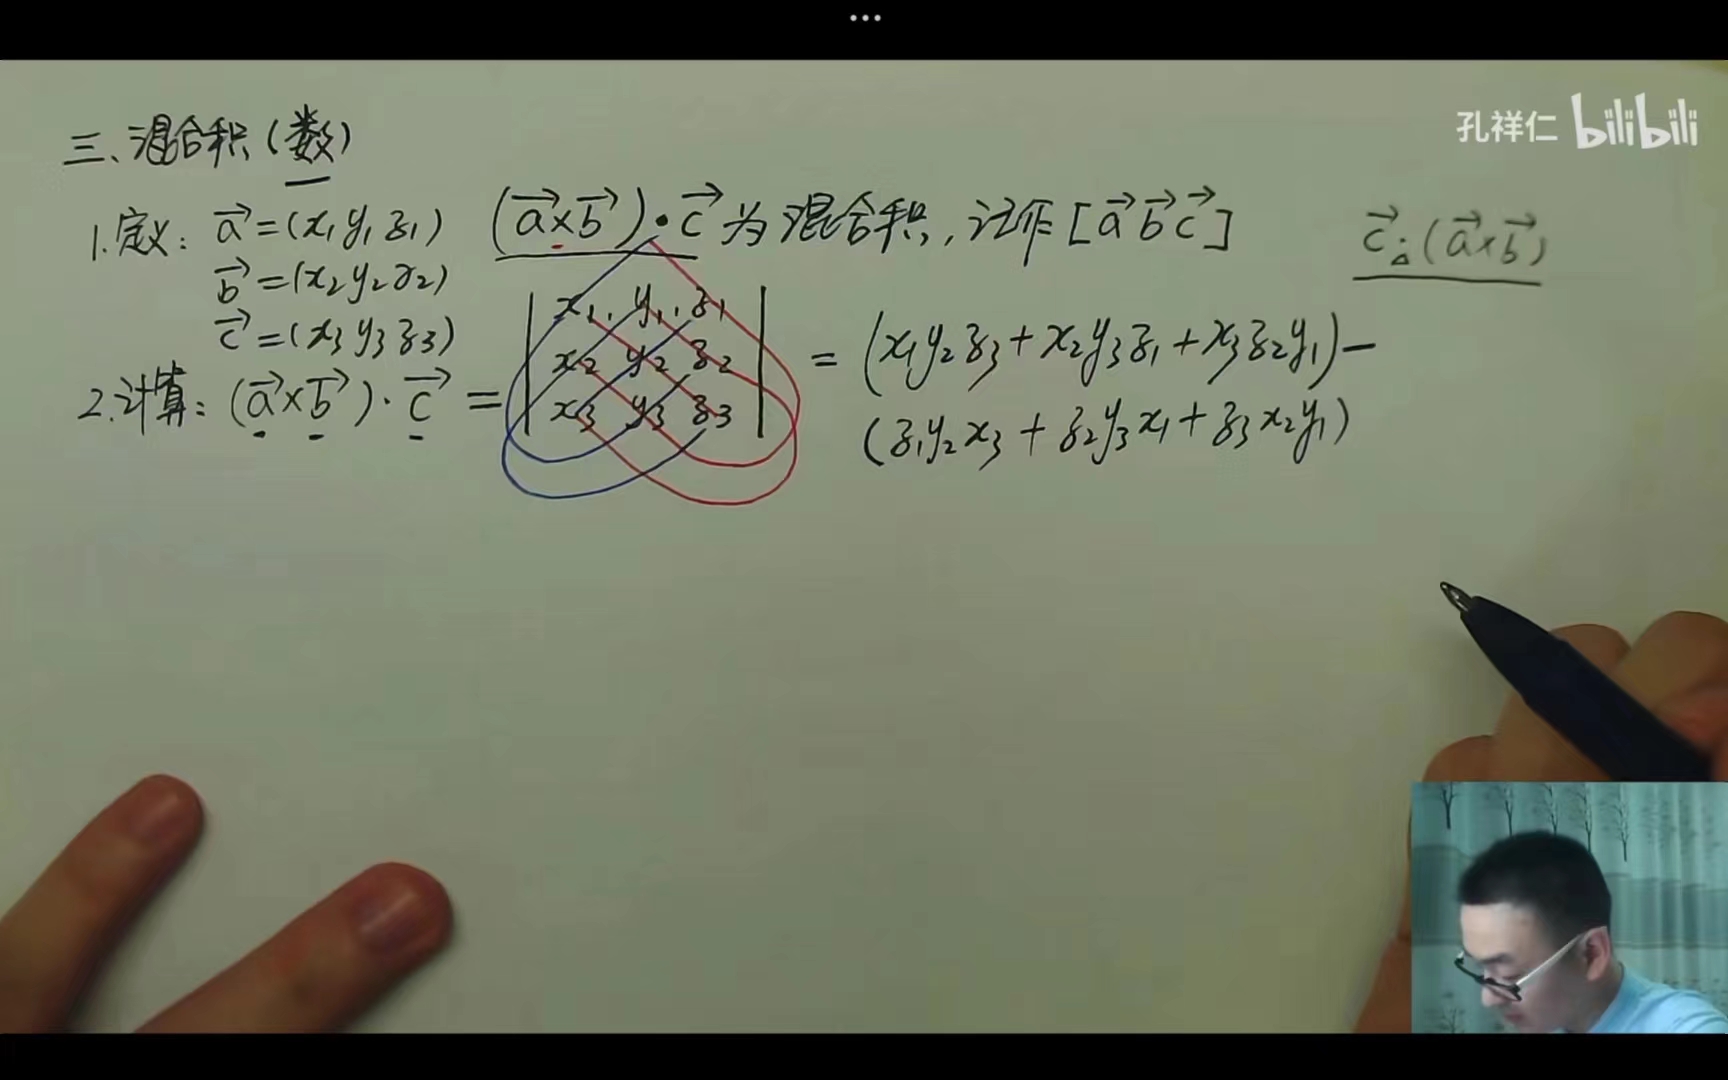 孔祥仁 bilibili
三、混合积(数)
1.定义: a⃗=(x₁y₁z₁) (a⃗×b⃗)·c⃗为混合积,记作[a⃗b⃗c⃗] c⃗·(a⃗×b⃗)
b⃗=(x₂y₂z₂)
c⃗=(x₃y₃z₃)
2.计算: (a⃗×b⃗)·c⃗ = | x₁, y₁, z₁
x₂ y₂ z₂
x₃ y₃ z₃ | = (x₁y₂z₃+x₂y₃z₁+x₃z₂y₁)−
(z₁y₂x₃+z₂y₃x₁+z₃x₂y₁)